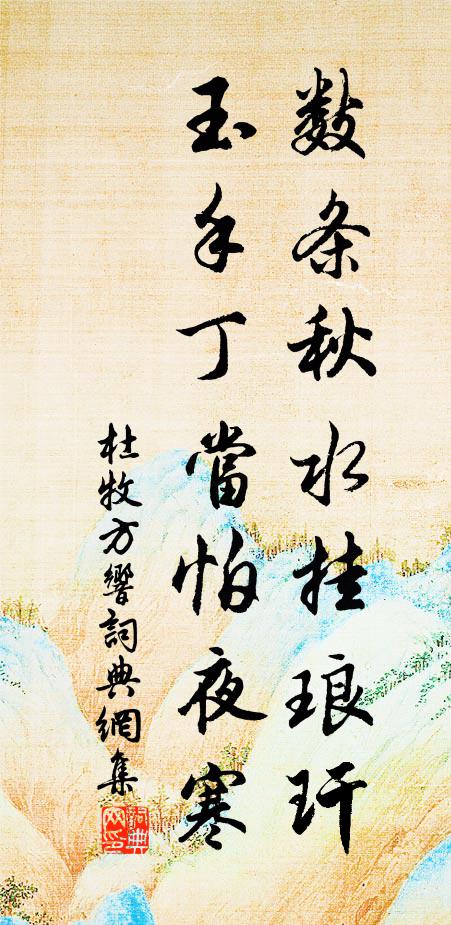 数条秋水挂琅玕
玉手丁當怕夜寒
杜牧方響詞典網集
詞典
网印